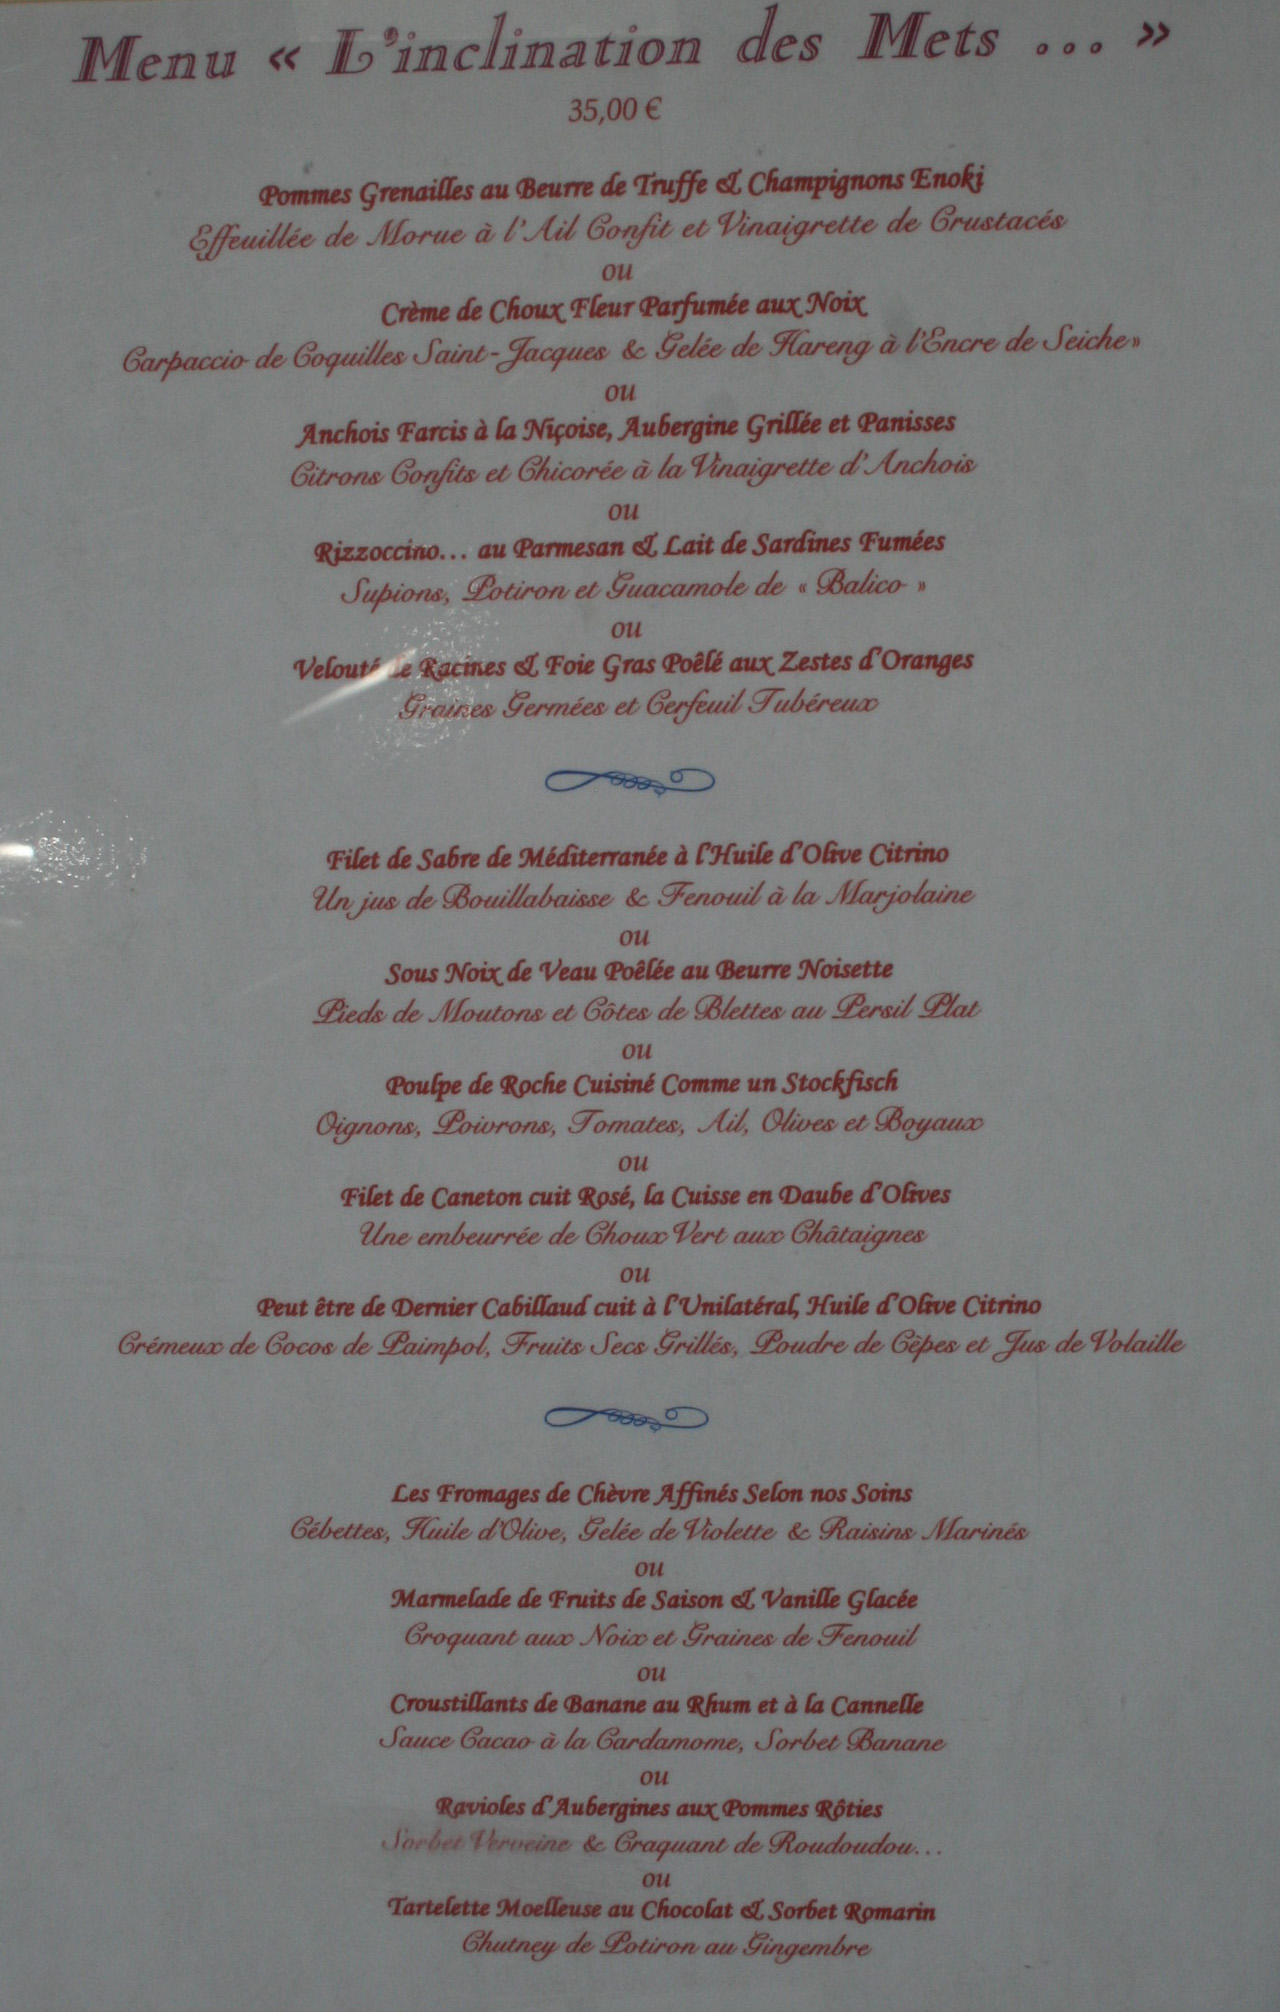 Menu « L'inclination des Mets ... »
35,00 €
Pommes Grenailles au Beurre de Truffe & Champignons Enoki
Effeuillée de Morue à l'Ail Confit et Vinaigrette de Crustacés
ou
Crème de Choux Fleur Parfumée aux Noix
Carpaccio de Coquilles Saint-Jacques & Gelée de Hareng à l'Encre de Seiche»
ou
Anchois Farcis à la Niçoise, Aubergine Grillée et Panisses
Citrons Confits et Chicorée à la Vinaigrette d'Anchois
ou
Rizzoccino... au Parmesan & Lait de Sardines Fumées
Supions, Potiron et Guacamole de « Balico »
ou
Velouté de Racines & Foie Gras Poêlé aux Zestes d'Oranges
Graines Germées et Cerfeuil Tubéreux
Filet de Sabre de Méditerranée à l'Huile d'Olive Citrino
Un jus de Bouillabaisse & Fenouil à la Marjolaine
ou
Sous Noix de Veau Poêlée au Beurre Noisette
Pieds de Moutons et Côtes de Blettes au Persil Plat
ou
Poulpe de Roche Cuisiné Comme un Stockfisch
Oignons, Poivrons, Tomates, Ail, Olives et Boyaux
ou
Filet de Caneton cuit Rosé, la Cuisse en Daube d'Olives
Une embeurrée de Choux Vert aux Châtaignes
ou
Peut être de Dernier Cabillaud cuit à l'Unilatéral, Huile d'Olive Citrino
Crémeux de Cocos de Paimpol, Fruits Secs Grillés, Poudre de Cèpes et Jus de Volaille
Les Fromages de Chèvre Affinés Selon nos Soins
Cébettes, Huile d'Olive, Gelée de Violette & Raisins Marinés
ou
Marmelade de Fruits de Saison & Vanille Glacée
Croquant aux Noix et Graines de Fenouil
ou
Croustillants de Banane au Rhum et à la Cannelle
Sauce Cacao à la Cardamome, Sorbet Banane
ou
Ravioles d'Aubergines aux Pommes Rôties
Sorbet Verveine & Craquant de Roudoudou...
ou
Tartelette Moelleuse au Chocolat & Sorbet Romarin
Chutney de Potiron au Gingembre